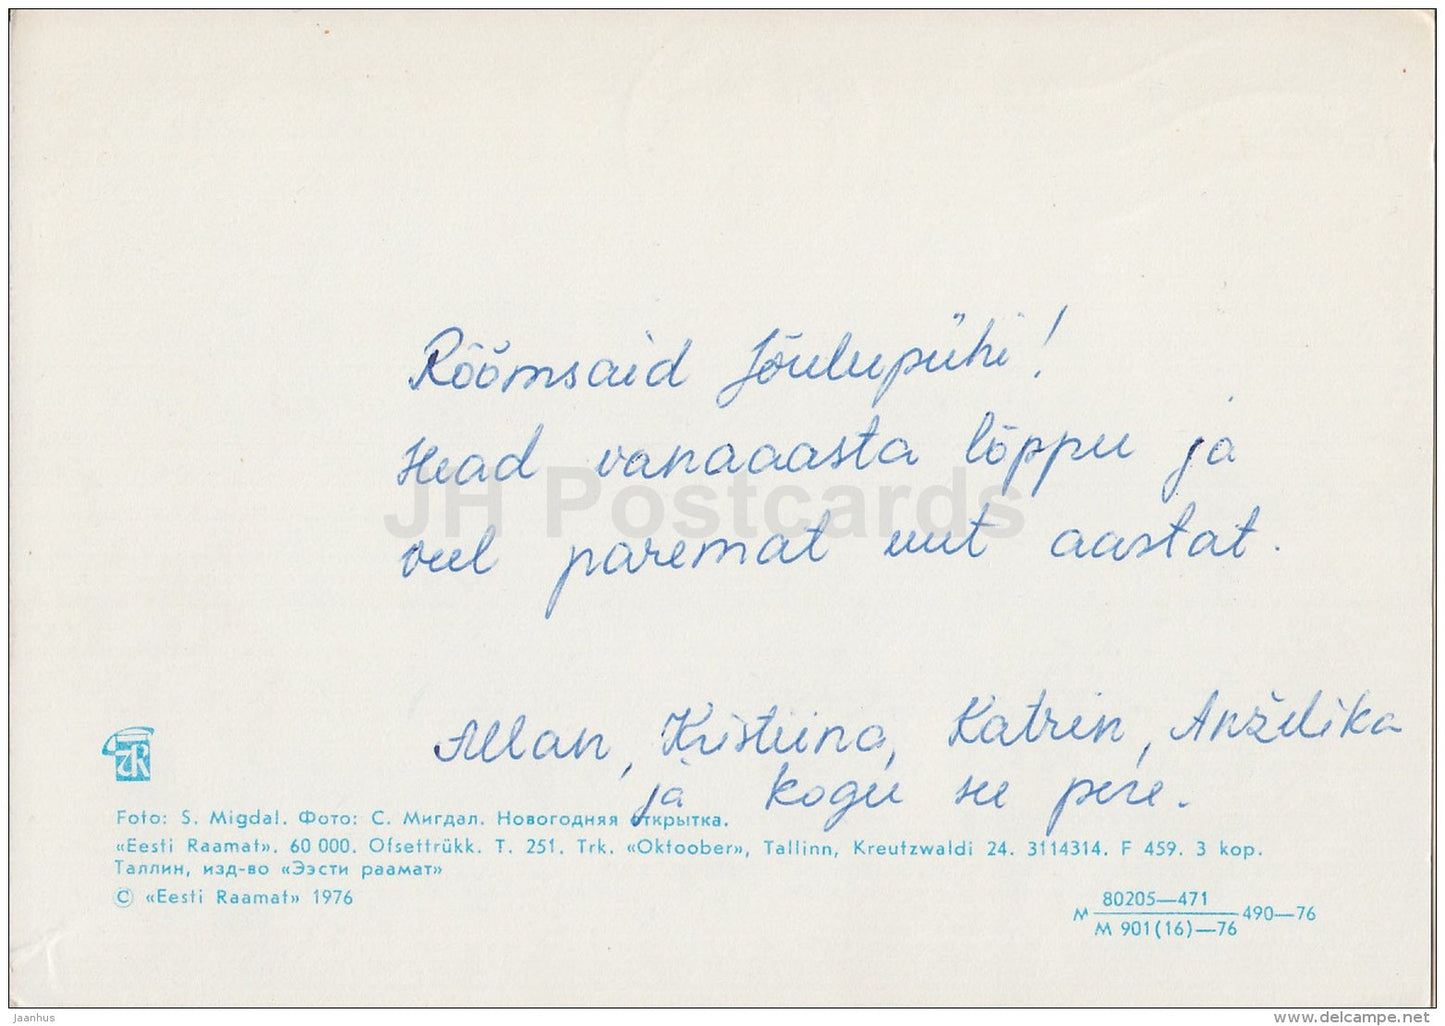 Rõõmsaid Jõulupühi!
Head vanaaasta lõppu ja
veel paremat uut aastat.
JH Postcards
Allan, Kristiina, Katrin, Anželika
ja kogu see pere.
Foto: S. Migdal. Фото: С. Мигдал. Новогодняя открытка.
«Eesti Raamat». 60 000. Ofsettrükk. T. 251. Trk. «Oktoober», Tallinn, Kreutzwaldi 24. 3114314. F 459. 3 kop.
Таллин, изд-во «Ээсти раамат»
© «Eesti Raamat» 1976
М 80205—471 490—76
М 901(16)—76
Jaanhus
©delcampe.net